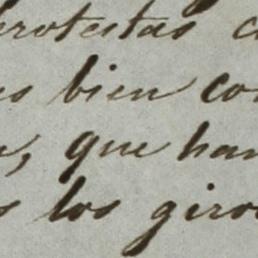 protestas
bien
que han
los giro